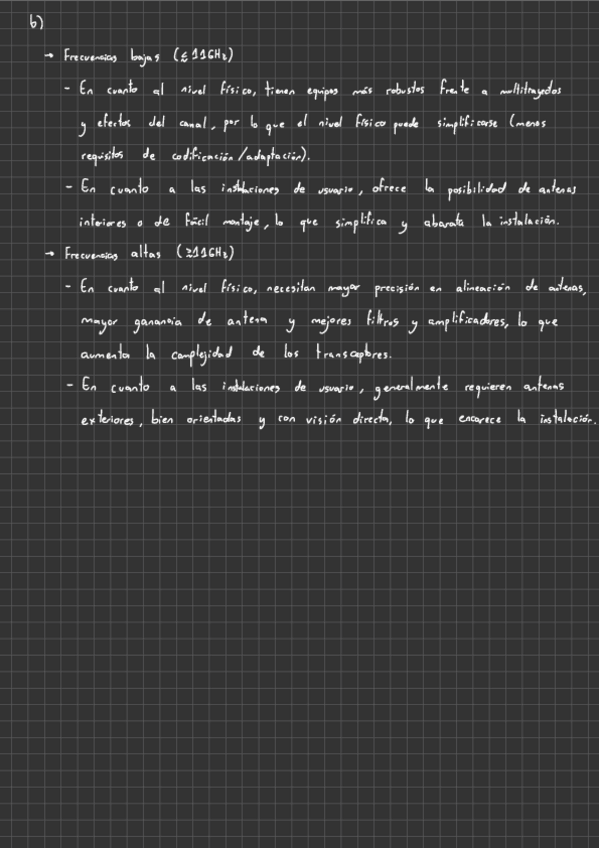 b)
→ Frecuencias bajas (≤ 11GHz)
- En cuanto al nivel físico, tienen equipos más robustos frente a multitrayectos
y efectos del canal, por lo que el nivel físico puede simplificarse (menos
requisitos de codificación/adaptación).
- En cuanto a las instalaciones de usuario, ofrece la posibilidad de antenas
interiores o de fácil montaje, lo que simplifica y abarata la instalación.
→ Frecuencias altas (≥11GHz)
- En cuanto al nivel físico, necesitan mayor precisión en alineación de antenas,
mayor ganancia de antena y mejores filtros y amplificadores, lo que
aumenta la complejidad de los transceptores.
- En cuanto a las instalaciones de usuario, generalmente requieren antenas
exteriores, bien orientadas y con visión directa, lo que encarece la instalación.